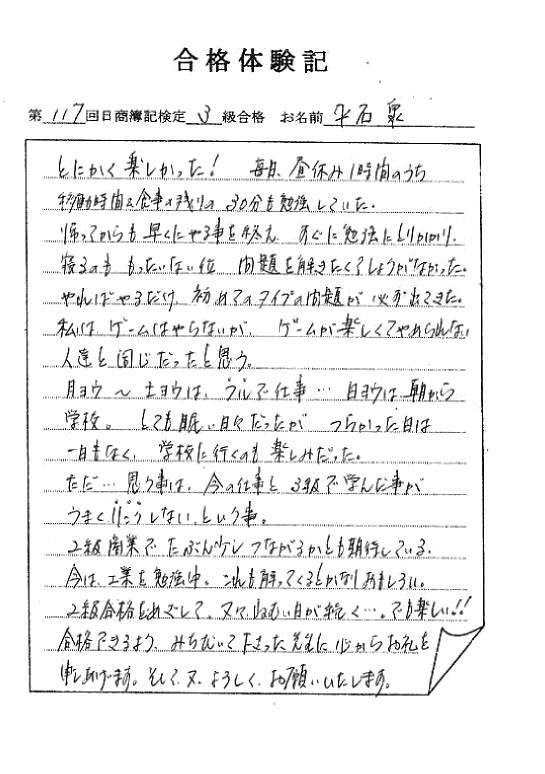 合格体験記
第117回日商簿記検定3級合格 お名前 平石 泉
とにかく楽しかった! 毎日、昼休み1時間のうち
移動時間&食事の残りの30分も勉強していた。
帰ってからも早くにやる事を終え、すぐに勉強にとりかかり、
寝るのももったいない位 問題を解きたくてしょうがなかった。
やればやるだけ、初めてのタイプの問題が必ず出てきた。
私は、ゲームはやらないが、ゲームが楽しくてやめられない
人達と同じだったと思う。
月ヨウ〜土ヨウは、フルで仕事…日ヨウは、朝から
学校。とても眠い日々だったが つらかった日は
一日もなく、学校に行くのも楽しみだった。
ただ…思う事は、今の仕事と3級で学んだ事が
うまくリンクしない、という事。
2級商業でたぶん つながるかとも期待している。
今は、工業を勉強中。これも解ってくるとかなりおもしろい。
2級合格をめざして、又々、ねむい日が続く…。でも楽しい!!
合格できるよう、みちびいて下さった先生に心からお礼を
申し上げます。そして、又、よろしくお願いいたします。